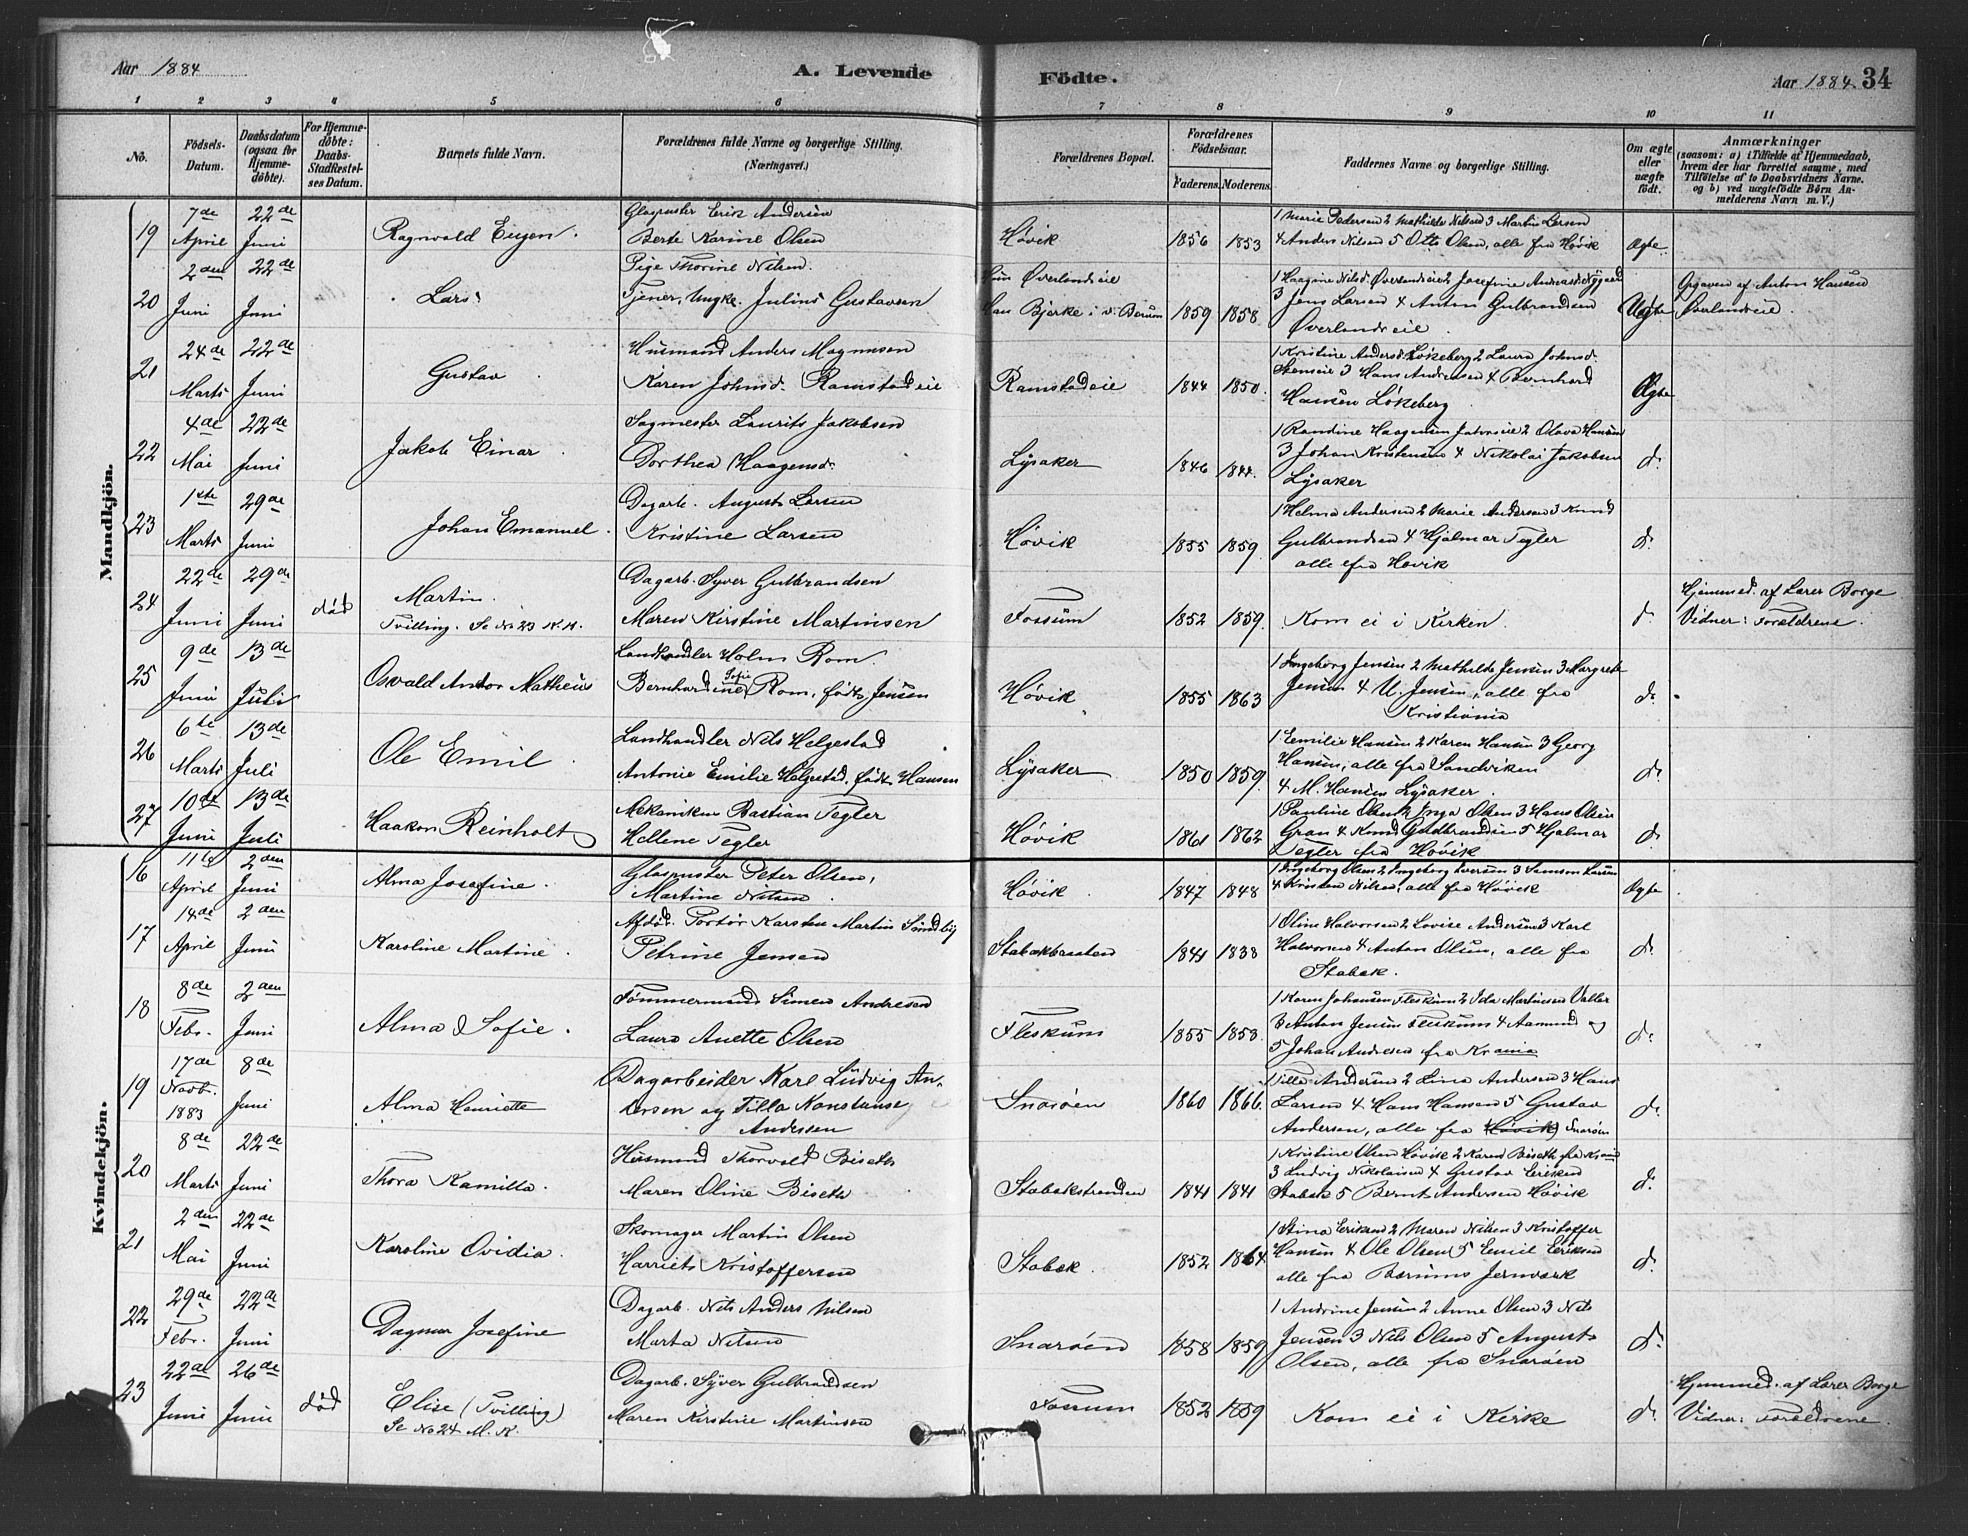 Aar 1884
A. Levende
Födte.
Aar 1884. 34
1 2 3 4 5 6 7 8 9 10 11
No.
Födsels-Datum.
Daabsdatum (ogsaa for Hjemme-döbte).
For Hjemme-döbte: Daabs-Stadfæstel-ses Datum.
Barnets fulde Navn.
Forældrenes fulde Navne og borgerlige Stilling. (Næringsvei.)
Forældrenes Bopæl.
Forældrenes Födselsaar.
Faderens. Moderens.
Faddernes Navne og borgerlige Stilling.
Om ægte eller uægte födt.
Anmærkninger
(saasom: a) i Tilfælde af Hjemmedaab, hvem der har forrettet samme, med Tilföielse af to Daabsvidners Navne. og b) ved uægtefödte Börn An-melderens Navn m. V.)
Mandkjön.
19 7de April 22de Juni Ragnvald Eugen.
Glaspuster Erik Andersen
Berte Karine Olsen
Høvik 1856 1853
1 Marie Pedersen 2 Mathilde Nilsen 3 Martin Larsen
4 Anders Nilsen 5 Otto Olsen, alle fra Høvik
Ægte
20 2den Juni 22de Juni Lars
Pige Thorine Nilsen.
Tjener, Ungk. Julius Gustavsen
Hun Øverlandseie
Han Bjerke i v. Bærum 1859 1858
1 Haagine Nilsd. Øverlandseie 2 Josefine Andreasd. Nygaard
3 Jens Larsen 4 Anton Gulbrandsen
Øverlandseie.
Uægte
Opgaven af Anton Hansen
Øverlandseie.
21 24de Marts 22de Juni Gustav
Husmand Anders Magnusen
Karen Johnsd. Ramstadeie
Ramstadeie 1844 1850.
1 Kristine Andersd. Løkeberg 2 Laura Johnsd.
3 Hans Andreasen 4 Bernhard
Hansen Løkeberg
Ægte
22 4de Mai 22de Juni Jakob Einar.
Sagmester Laurits Jakobsen
Dorthea Haagensd.
Lysaker 1846 1844.
1 Randine Haagensen 2 Olava Hansen
3 Johan Kristensen 4 Nikolai Jakobsen
Lysaker
d.
23 1ste Marts 29de Juni Johan Emanuel.
Dagarb. August Larsen
Kristine Larsen
Høvik 1855 1859.
1 Helma Andersen 2 Marie Andersen 3 Knud
Gulbrandsen 4 Hjalmar Tegler
alle fra Høvik
d.
24 22de Juni 29de Juni død Martin.
Tvilling. Se No 23 K. K.
Dagarb. Syver Gulbrandsen
Maren Kirstine Martinsen
Fossum 1852 1859.
Kom ei i Kirken.
d.
Hjemmed. af Lærer Borge
Vidner: Forældrene.
25 9de Juni 13de Juli Osvald Antor Matheus
Landhandler Holm Rom.
Bernhardine Sofie Rom, født Jensen
Høvik 1855 1863
1 Ingeborg Jensen 2 Mathilde Jensen 3 Margrete
Jensen 4 U. Jensen, alle fra
Kristiania
d.
26 6te Marts 13de Juli Ole Emil
Landhandler Nils Helgestad
Antonie Emilie Helgestad, født Hansen
Lysaker 1850 1859.
1 Emilie Hansen 2 Karen Hansen 3 Georg
Hansen, alle fra Sandviken
4 M. Hansen Lysaker.
d.
27 10de Juni 13de Juli Haakon Reinholt
Mekaniker Bastian Tegler
Hellene Tegler
Høvik 1861 1862
1 Pauline Olsen 2 Inga Olsen 3 Hans Olsen
Gran 4 Knud Guldbrandsen 5 Hjalmar
Tegler fra Høvik
d.
Kvindekjön.
16 11te April 2den Juni Alma Josefine.
Glaspuster Peter Olsen,
Martine Nilsen.
Høvik. 1847 1848
1 Ingeborg Olsen 2 Ingeborg Iversen 3 Samson Larsen
4 Kristen Nilsen, alle fra Høvik
Ægte
17 14de April 2den Juni Karoline Martine.
Afdød. Karsten Martin Sundby
Petrine Jensen
Stabækbraaten 1841 1838
1 Oline Halvorsen 2 Lovise Andersen 3 Karl
Halvorsen 4 Anton Olsen, alle fra
Stabæk.
d.
18 8de Febr. 2den Juni Alma Sofie.
Tømmermand Simen Andresen
Laura Anette Olsen
Fleskum 1855 1853.
1 Karen Johansen Fleskum 2 Ida Martinsen Valler
3 Anton Jensen Fleskum 4 Aamund og
5 Johan Andresen fra Krania
d.
19 17de Novbr. 1883 8de Juni Alma Henriette
Dagarbeider Karl Ludvig An-
dersen og Tilla Konstanse
Andersen
Snarøen 1860 1866.
1 Tilla Andersen 2 Lina Andersen 3 Hans
Larsen 4 Hans Hansen 5 Gustav
Andersen, alle fra Høvik Snarøen
d.
20 8de Marts 22de Juni Thora Kamilla.
Husmand Thorvald Biseth
Maren Oline Biseth
Stabækstranden 1841 1841
1 Kristine Olsen Høvik 2 Karen Biseth fra Krania
3 Ludvig Nikolaisen 4 Gustav Eriksen
Stabæk 5 Bernt Andersen Høvik
d.
21 2den Mai 22de Juni Karoline Ovidia.
Skomager Martin Olsen
Harriet Kristoffersen
Stabæk. 1852 1864
1 Stina Eriksen 2 Maren Nilsen 3 Kristoffer
Hansen 4 Ole Olsen 5 Emil Eriksen
alle fra Bærums Jernværk
d.
22 29de Febr. 22de Juni Dagmar Josefine
Dagarb. Nils Anders Nilsen
Marta Nilsen
Snarøen 1858 1859
1 Andrine Jensen 2 Anne Olsen 3 Nils
Jensen 3 Nils Olsen 5 August
Olsen, alle fra Snarøen
d.
23 22de Juni 26de Juni død Elise (Tvilling)
Se No 24 M. K.
Dagarb. Syver Gulbrandsen
Maren Kirstine Martinsen
Fossum 1852 1859
Kom ei i Kirke
d.
Hjemmed. af Lærer Borge
Vidner: Forældrene.